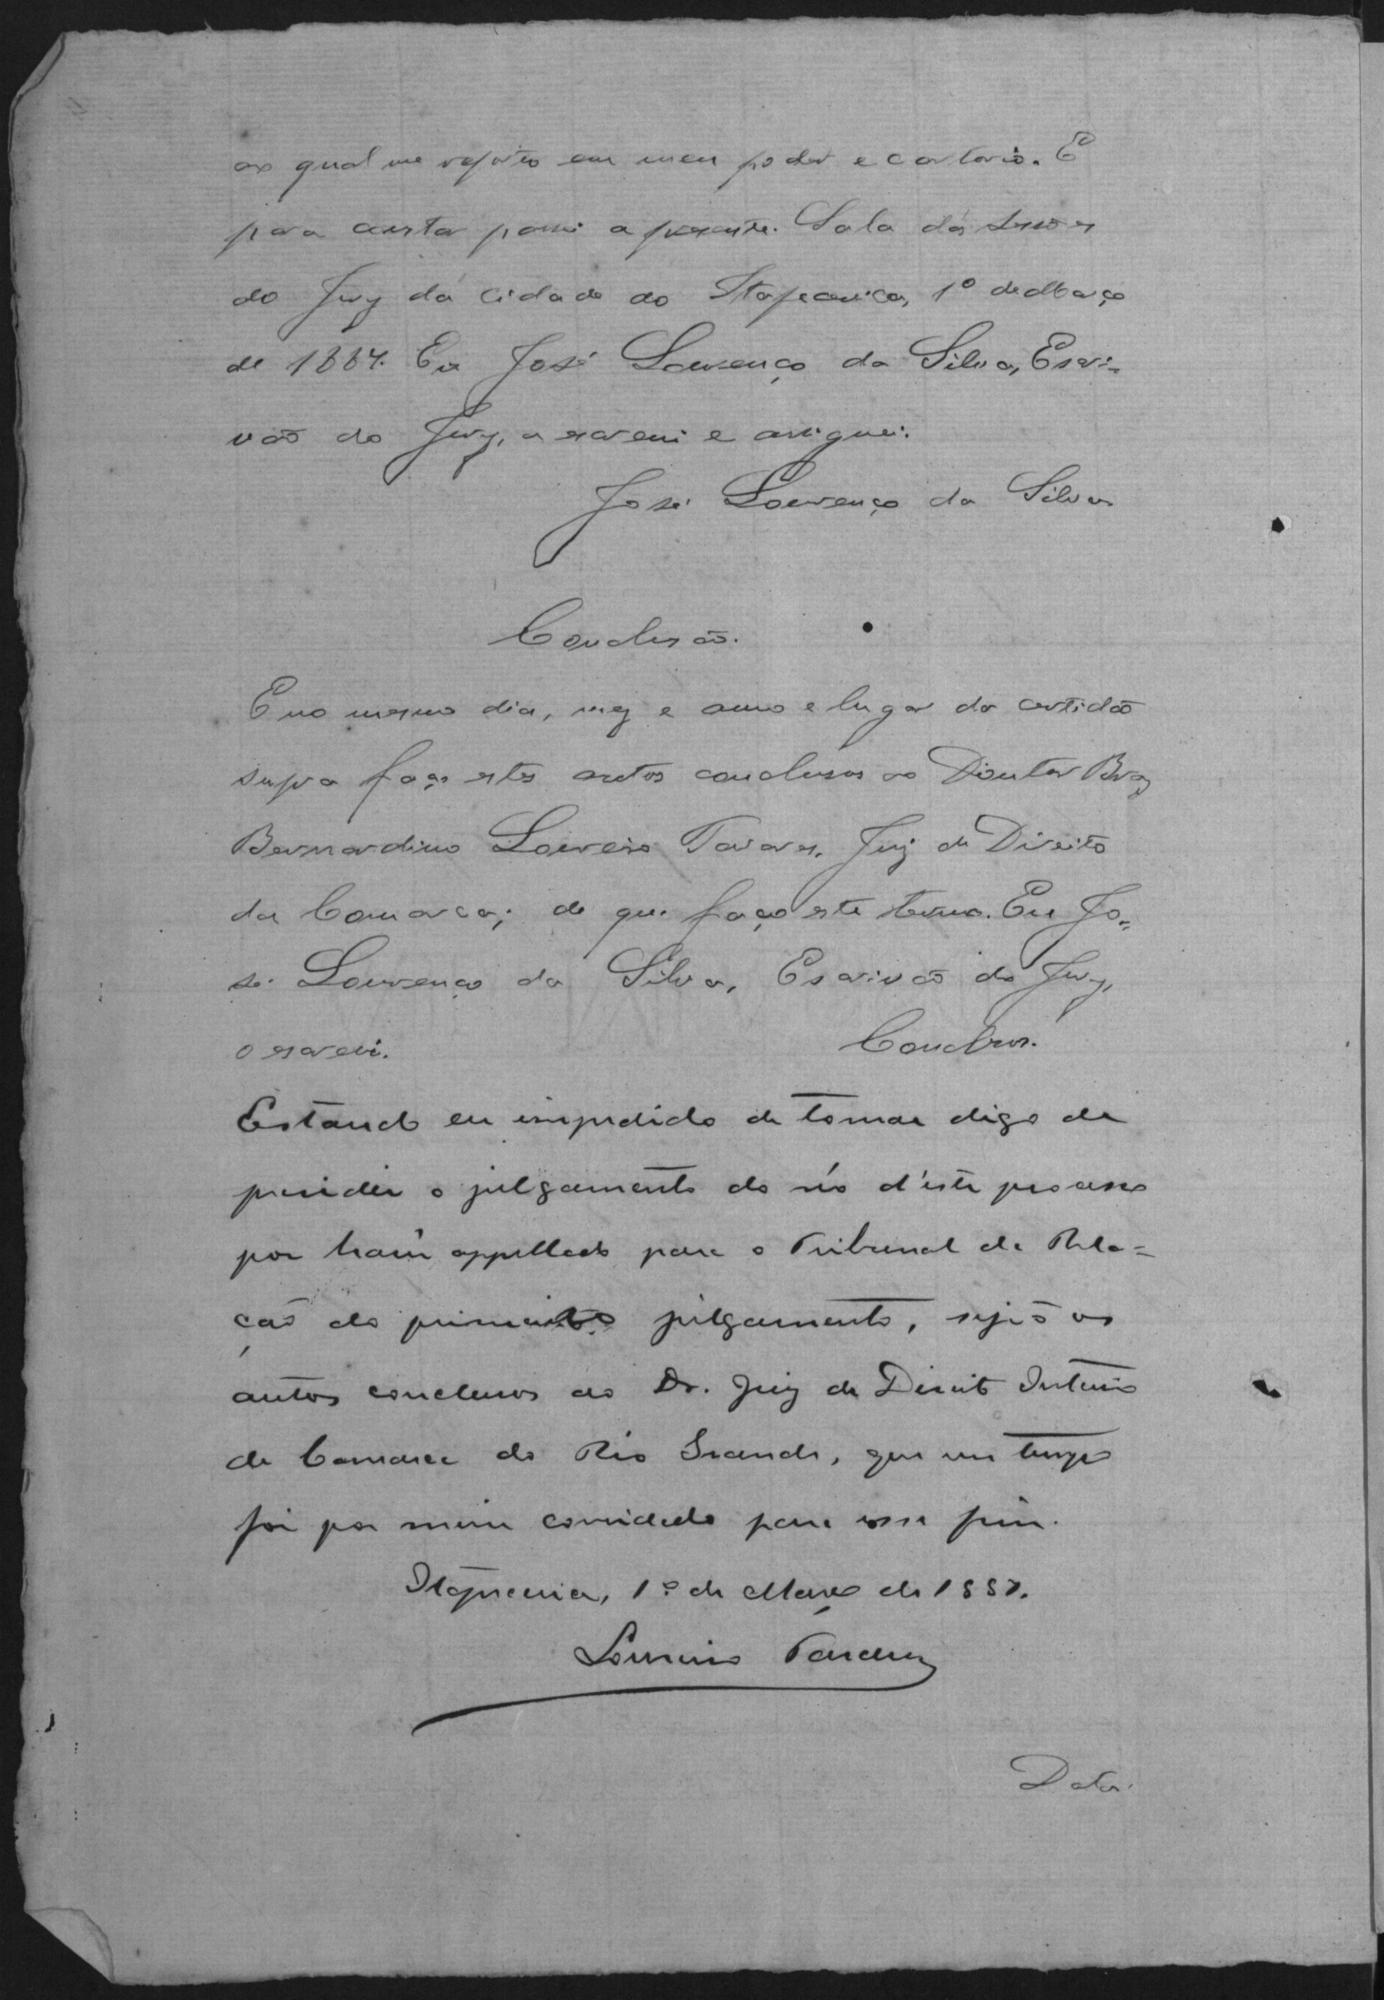 ao qual me reporto em meu poder e cartorio. E
para constar passei a presente. Sala das sessões
do Jury da cidade de Itapecerica, 1º de Março
de 1887. Eu José Lourenço da Silva, Escri-
vão do Jury, a escrevi e assignei.
José Lourenço da Silva
Conclusão.
E no mesmo dia, mez e anno e lugar da certidão
supra faço estes autos conclusos ao Doutor Braz
Bernardino Loureiro Tavares, Juiz de Direito
da Comarca; do que faço este termo. Eu Jo-
sé Lourenço da Silva, Escrivão do Jury,
o escrevi. Conclusos.
Estando eu impedido de tomar digo de
presidir o julgamento do réo d'este processo
por haver appellado para o Tribunal da Rela=
ção do primeiro julgamento, sejão os
autos conclusos ao Dr. Juiz de Direito Interino
da Comarca do Rio Grande, que em tempo
foi por mim convidado para esse fim.
Itapecerica, 1º de Março de 1887.
Loureiro Tavares
Data.